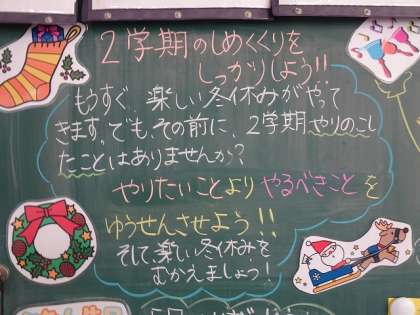 2学期のしめくくりを
しっかりしよう!!
もうすぐ、楽しい冬休みがやって
きます。でも、その前に、2学期やりのこし
たことはありませんか?
やりたいことよりやるべきことを
ゆうせんさせよう!!
そして楽しい冬休みを
むかえましょう!